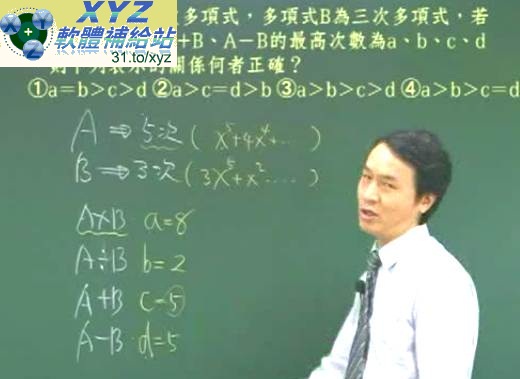 XYZ
軟體補給站
31.to/xyz
多項式，多項式B為三次多項式，若
+B、A－B的最高次數為a、b、c、d
的關係何者正確？
①a=b>c>d ②a>c=d>b ③a>b>c>d ④a>b>c=d
A ⇒ 5次 ( x⁵+4x⁴+... )
B ⇒ 3次 ( 3x⁵+x².... )
A×B a=8
A÷B b=2
A+B c=5
A-B d=5